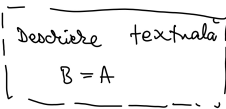 Descriere textuala
B = A